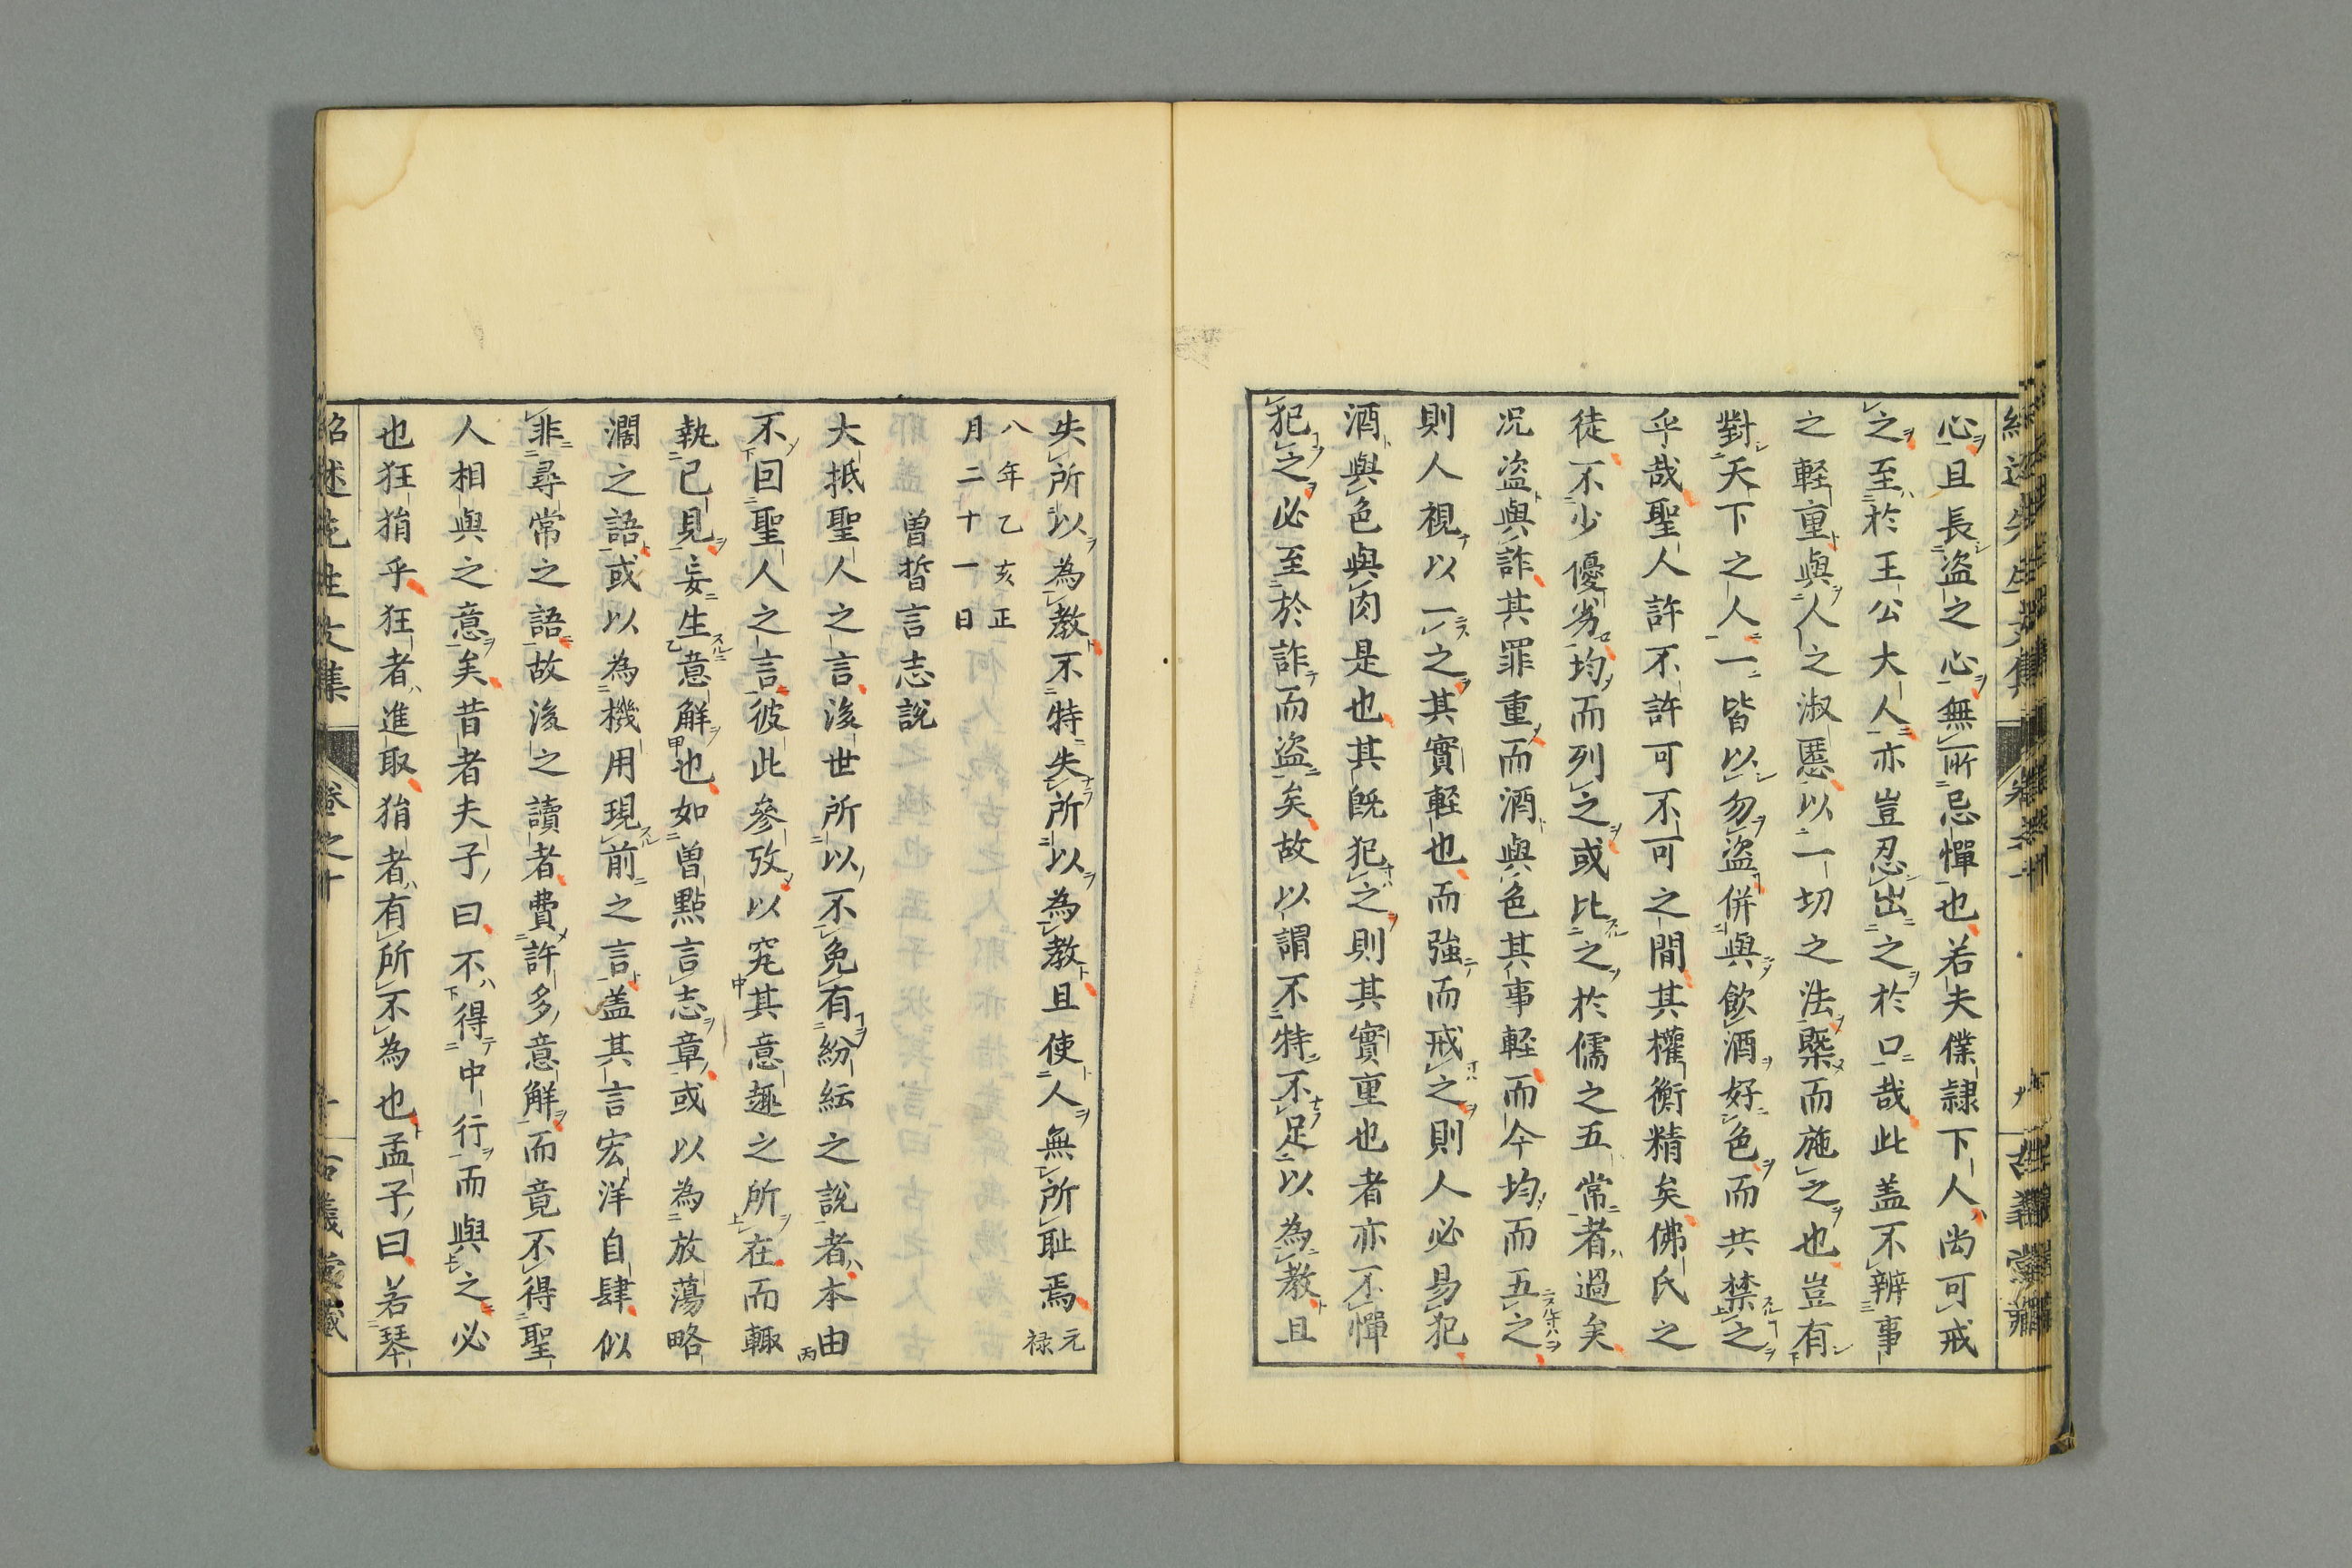 心且長盜之心無所忌憚也若夫僕隷下人尚可戒
之至於王公大人亦豈忍出之於口哉此盖不辨事
之軽重與人之淑慝以一切之法槩而施之也豈有
對天下之人一一皆以勿盜併與飲酒好色而共禁之
乎哉聖人許不許可不可之間其權衡精矣佛氏之
徒不少優劣均而列之或比之於儒之五常者過矣
况盜與詐其罪重而酒與色其事軽而今均而五之
則人視以一之其實軽也而強而戒之則人必易犯
酒與色與肉是也其既犯之則其實重也者亦不憚
犯之必至於詐而盜矣故以謂不特不足以為教且
失所以為教不特失所以為教且使人無所耻焉元禄
八年乙亥正
月二十一日
曽晳言志説
大抵聖人之言後世所以不免有紛紜之説者本由
不回聖人之言彼此參攷以究其意趣之所在而輙
執已見妄生意解也如曽點言志章或以為放蕩略
濶之語或以為機用現前之言盖其言宏洋自肆似
非尋常之語故後之讀者費許多意解而竟不得聖
人相與之意矣昔者夫子曰不得中行而與之必
也狂狷乎狂者進取狷者有所不為也孟子曰若琴
紹述先生文集 卷之十 古義堂藏